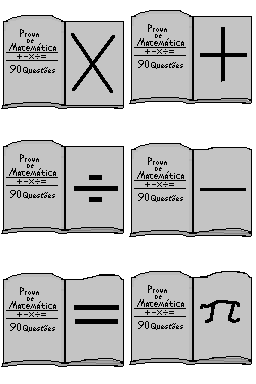 Prova
de
Matemática
+-x÷=
90 Questões
X
Prova
de
Matemática
+-x÷=
90 Questões
+
Prova
de
Matemática
+-x÷=
90 Questões
÷
Prova
de
Matemática
+-x÷=
90 Questões
-
Prova
de
Matemática
+-x÷=
90 Questões
=
Prova
de
Matemática
+-x÷=
90 Questões
π